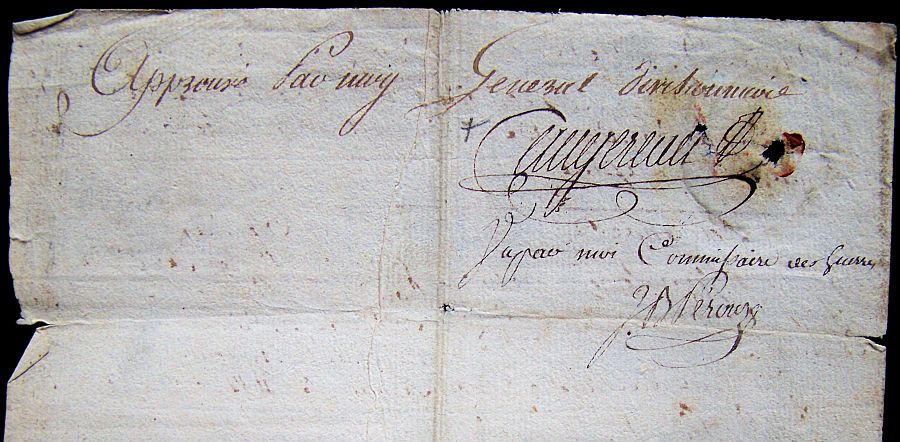 Approuvé Par moy General divisionnaire
Vu par moi Commissaire des Guerres
J B